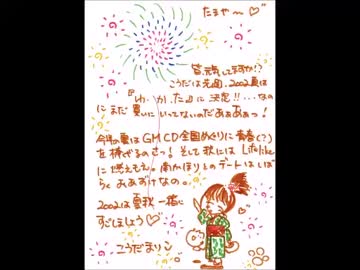 たまや〜♡
皆、元気してますか!?
こうだは元気。2002夏は
『ゆ・か・た』に決定!!…なの
にまだ買いにいってないのだぁぁぁっ!
今年の夏はGM CD全国めぐりに青春(?)
を捧げるのさっ! そして秋にはLifelike
に燃えもえ。南かほりとのデートはしば
らくおあずけなの。
2002は夏秋一緒に
すごしましょう♡
こうだまりこ